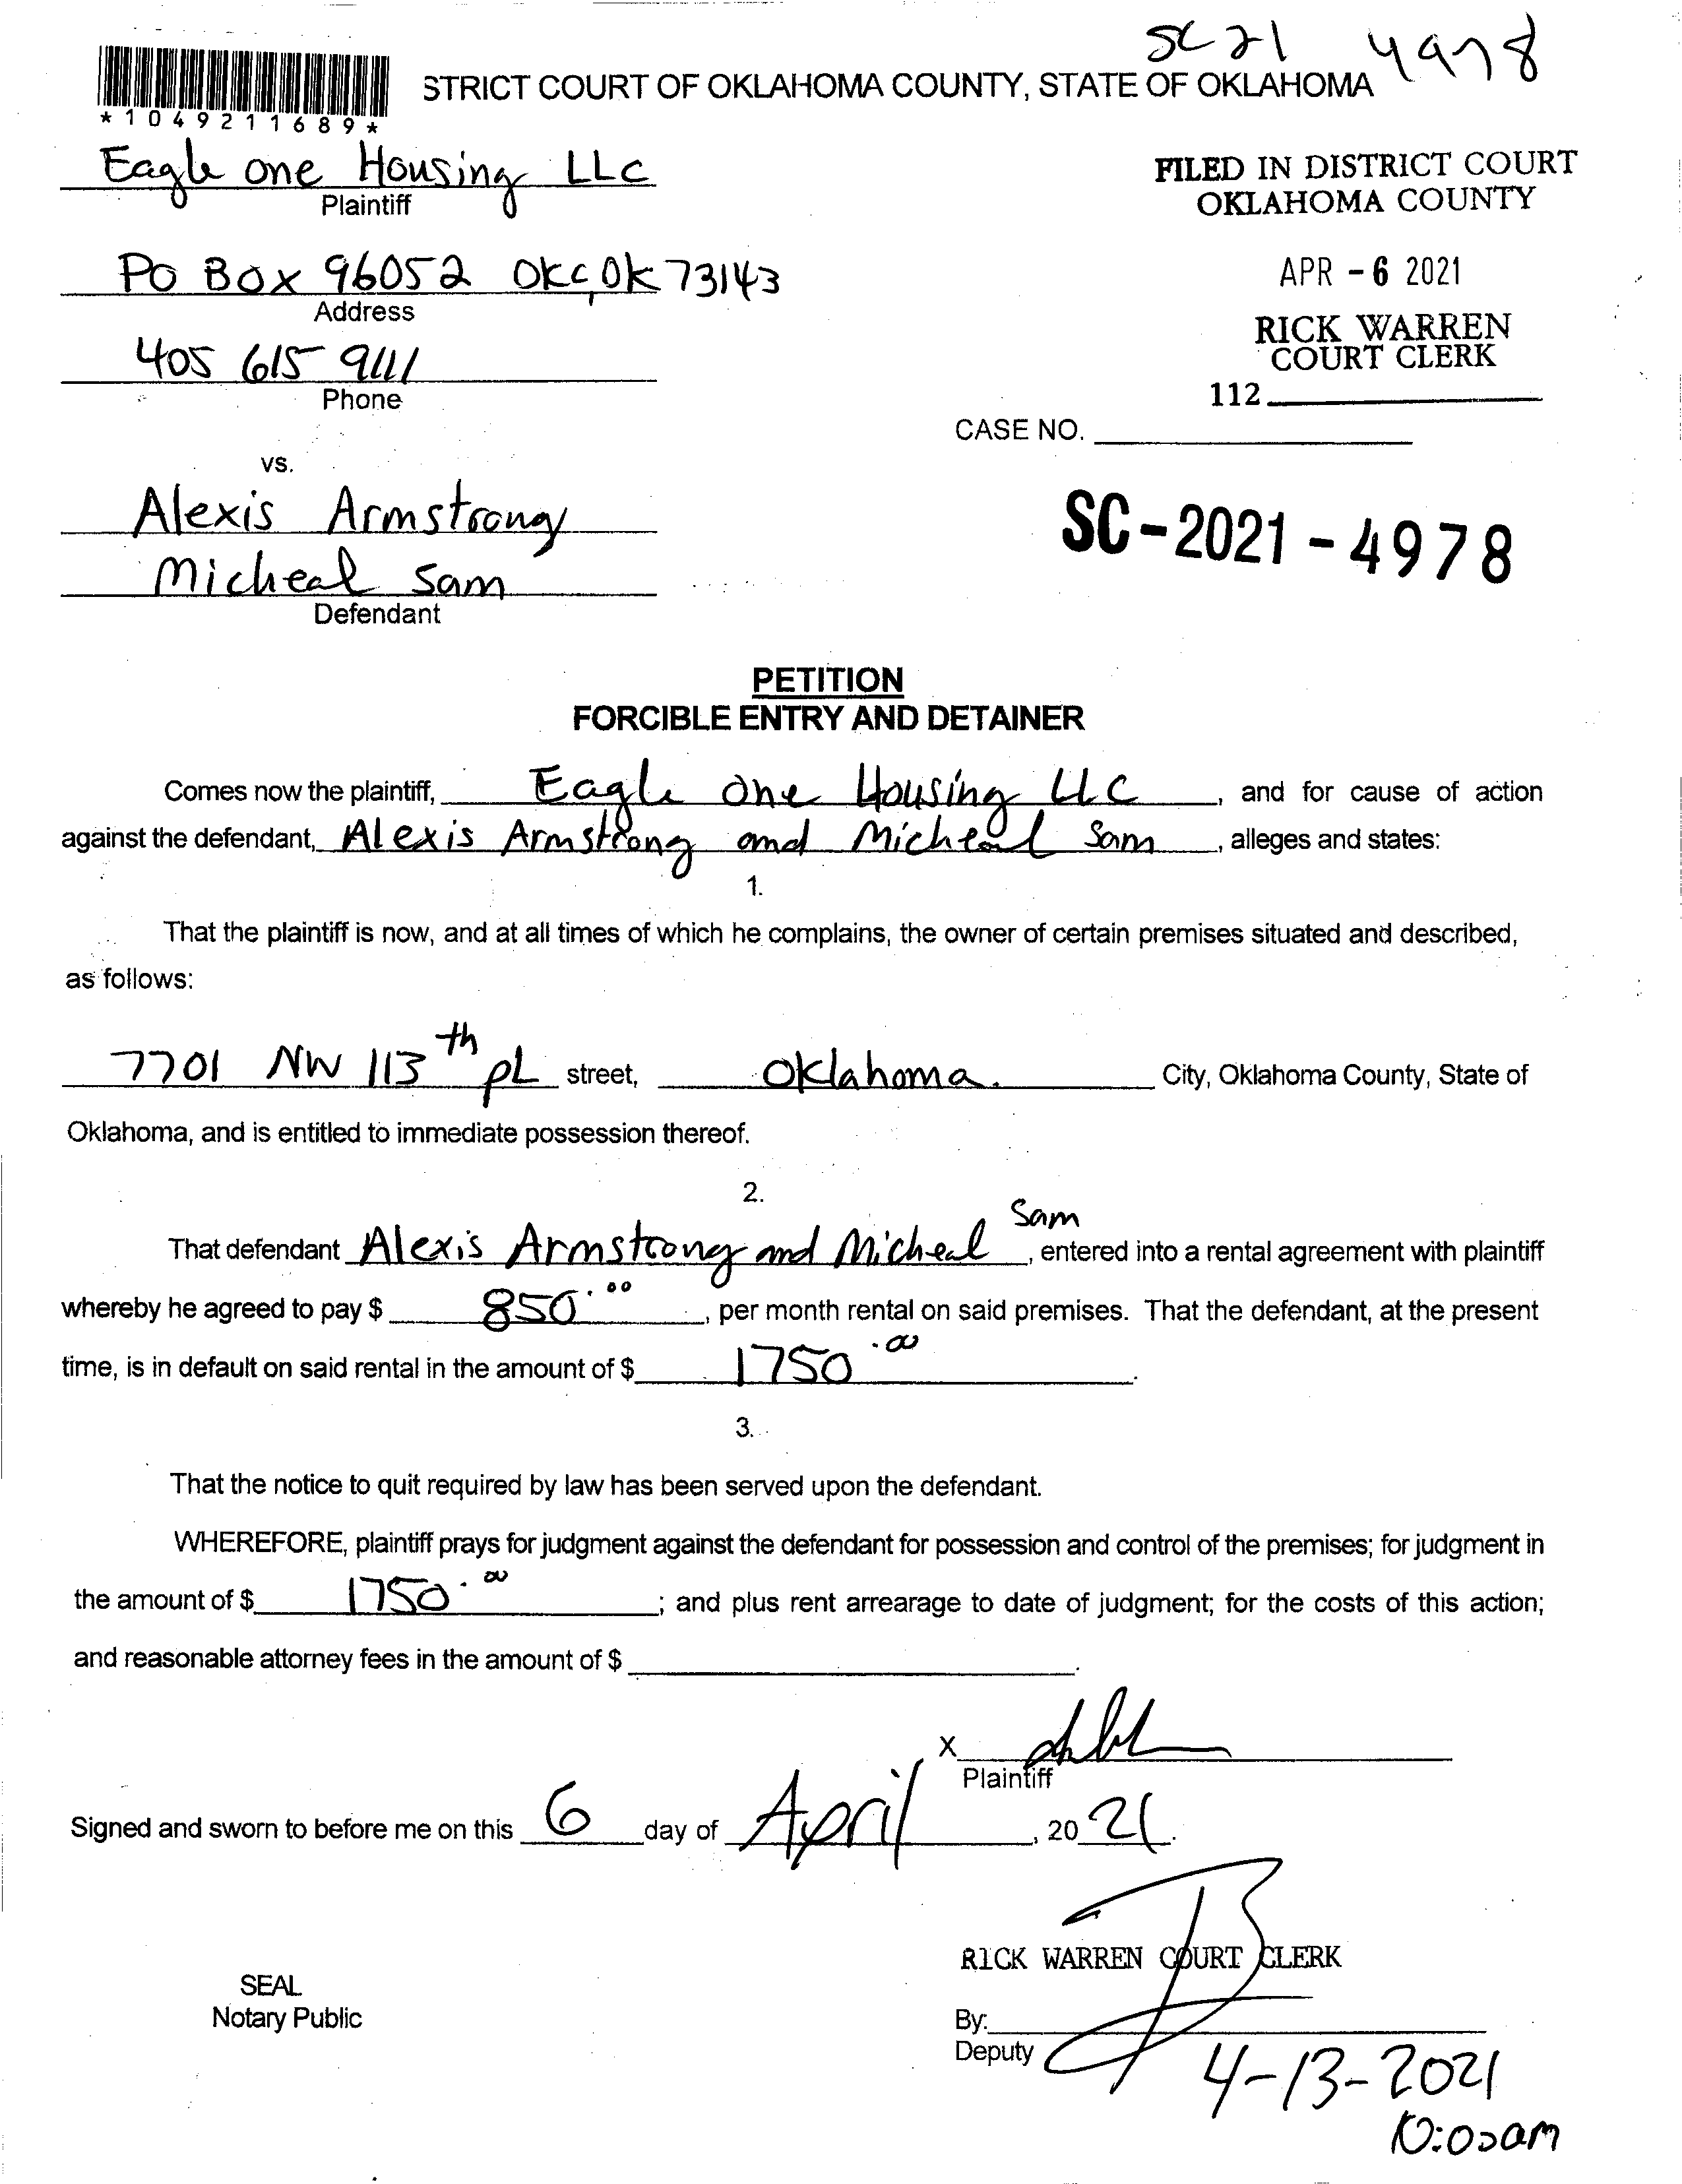 SC 21 4978
STRICT COURT OF OKLAHOMA COUNTY, STATE OF OKLAHOMA
*1049211689*
Eagle one Housing LLC
Plaintiff
FILED IN DISTRICT COURT
OKLAHOMA COUNTY
PO Box 96052 OKC, OK 73143
Address
APR - 6 2021
405 615 9111
Phone
RICK WARREN
COURT CLERK
112
CASE NO.
vs.
Alexis Armstrong
Micheal Sam
Defendant
SC-2021-4978
PETITION
FORCIBLE ENTRY AND DETAINER
Comes now the plaintiff, Eagle One Housing LLC, and for cause of action
against the defendant, Alexis Armstrong and Micheal Sam, alleges and states:
1.
That the plaintiff is now, and at all times of which he complains, the owner of certain premises situated and described,
as follows:
7701 NW 113th PL street, Oklahoma. City, Oklahoma County, State of
Oklahoma, and is entitled to immediate possession thereof.
2.
That defendant Alexis Armstrong and Micheal Sam, entered into a rental agreement with plaintiff
whereby he agreed to pay $ 850.00, per month rental on said premises. That the defendant, at the present
time, is in default on said rental in the amount of $ 1750.00.
3.
That the notice to quit required by law has been served upon the defendant.
WHEREFORE, plaintiff prays for judgment against the defendant for possession and control of the premises; for judgment in
the amount of $ 1750.00; and plus rent arrearage to date of judgment; for the costs of this action;
and reasonable attorney fees in the amount of $ .
X
Plaintiff
Signed and sworn to before me on this 6 day of April, 2021.
RICK WARREN COURT CLERK
SEAL
Notary Public
By:
Deputy
4-13-2021
10:00am